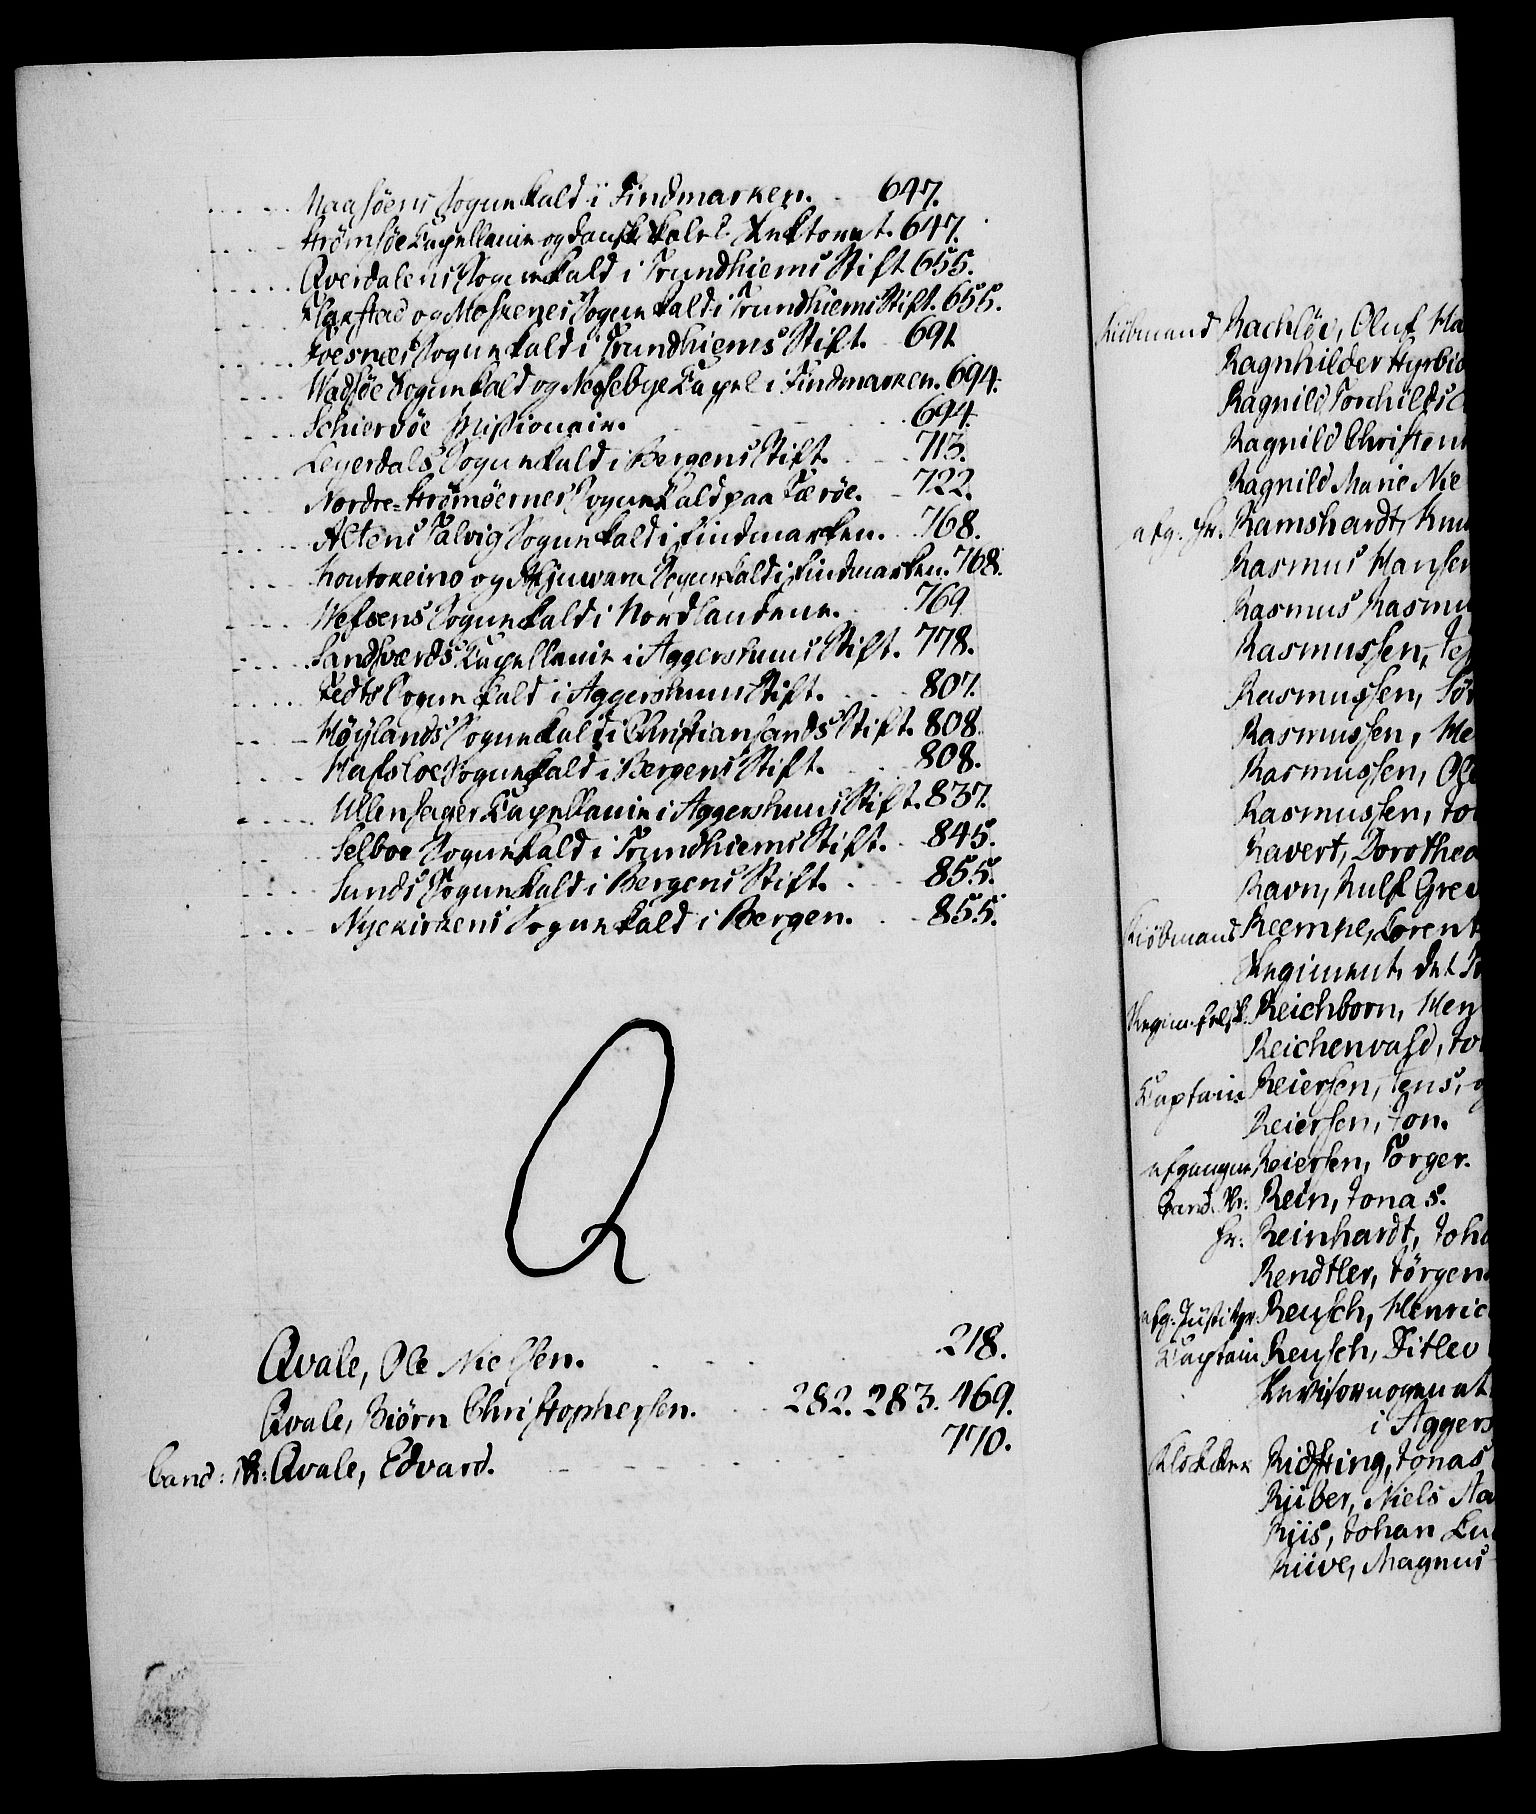 .... Maasöens Sognekald i Findmarken. .. 647.
.... Strömsöe Capellanie og danske Skoles Rectorat. 647.
.... Qverdalens Sognekald i Trundhiems Stift 655.
.... Flakstad og Moskenes Sognekald i Trundhiems Stift. 655.
.... Foesnæs Sognekald i Trundhiems Stift. .. 691.
.... Wadsöe Sognekald og Nessebye Capel i Findmarken. 694.
.... Schiervöe Missionair. ..... 694.
.... Leyerdals Sognekald i Bergens Stift. ... 713.
.... Nordre-Strömöernes Sognekald paa Færöe. .. 722.
.... Altens Talvig Sognekald i Findmarken. .. 768.
.... Koutokeino og Afjuwara Sognekald i Findmarken. 768.
.... Wefsens Sognekald i Nordlandene. .. 769
.... Sandsværds Capellanie i Aggershuus Stift. 778.
.... Sognekald i Aggershuus Stift. ... 807.
.... Höylands Sognekald i Christiansands Stift. 808.
.... Hafsloe Sognekald i Bergens Stift. ... 808.
.... Ullensager Capellanie i Aggershuus Stift. 837.
.... Selboe Sognekald i Trundhiems Stift. .. 845.
.... Sunds Sognekald i Bergens Stift. .. 855.
.... Nyekirkens Sognekald i Bergen. .. 855.
Q
Qvale, Ole Nielsen. .... 218.
Qvale, Biörn Christophersen. .. 282. 283. 469.
Cand: Qvale, Edvard. ..... 770.
Kiöbmand Rachlöe, Oluf Ha
Ragnhilder Hyrbie
Ragnild Torchilds
Ragnild Christen
Ragnild Marie Nie
afg. Hr. Ramshardt, Knu
Rasmus Hansen
Rasmus Rasmu
Rasmussen,
Rasmussen, Sör
Rasmussen, He
Rasmussen, Ole
Rasmussen, To
Ravert, Dorothea
Ravn, Rulf Grev
Kiöbmand Reempe, Lorent
Regiment, det
Reichborn, Hen
Reichenvald, Jo
Captain Reiersen, Jens, o
Reiersen, Jon.
afgangne Reiersen, Torger.
Cand. Rein, Jonas.
Hr. Reinhardt, Joha
Rendtler, Jörgen
afg. Justitzr. Reusch, Henric
Captain Reusch, Ditlev
Revisornogenat
i Aggers
Klokker Ridfting, Jonas
Riiber, Niels Aa
Riis, Johan Lu
Riive, Magnus